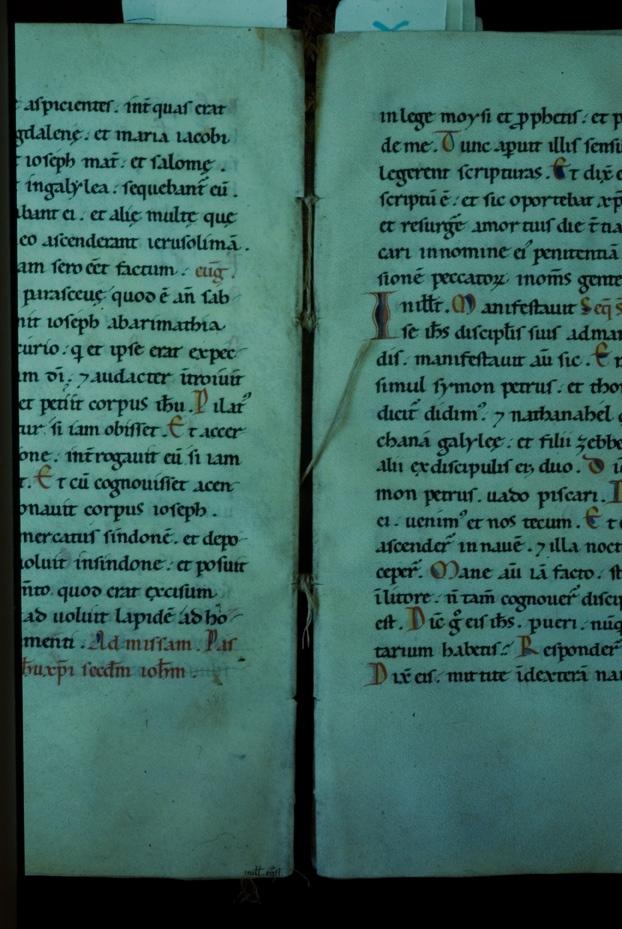 aspicientes. int̄ quas erat
gdalenę. et maria iacobi
ioseph mat̄. et salomę.
ingalylea. sequebant̄ eū.
bant ei. et alię multę quę
eo ascenderant ierusolimā.
am sero eēt factum. euḡ.
parasceuę quod ē an̄ sab
nit ioseph abarimathia
curio. q et ipse erat expec
m dī. ⁊ audacter ītroiuit
et petiit corpus ih̄u. Pilatꝰ
tur si iam obisset. Et accer
one. int̄rogauit eū si iam
t. Et cū cognouisset acen
onauit corpus ioseph.
mercatus sindonē. et depo
uoluit insindone. et posuit
m̄to quod erat excisum
ad uoluit lapidē ad ho
menti. Ad missam. Pas
h̄u xp̄i secd̄m ioh̄m
inlege moysi et ꝓphetis. et p
de me. Tunc apuit illis sensu
legerent scripturas. Et dix̄ e
scriptū ē. et sic oportebat xp̄
et resurgē amortuis die t̄tia
cari innomine eiꝰ penitentiā
sionē peccatoꝝ inom̄s gente
In ill̄t. Manifestauit Seq̄ s̄
se ih̄s discipl̄is suis ad mar
dis. manifestauit aū sic. Er
simul symon petrus. et tho
dicit̄ didimꝰ. ⁊ nathanahel
chana galylęę. et filii zebbe
alii ex discipulis eiꝰ duo. D
mon petrus. uado piscari.
ei. uenimꝰ et nos tecum. Et
ascender̄ in nauē. ⁊ illa noct
ceper̄. Mane aū iā facto. st
ī litore. n̄ tam̄ cognouer̄ disci
est. Dic̄ g̊ eis ih̄s. pueri. nūq
tarium habetis. Responder̄
Dix̄ eis. mittite īdexterā na